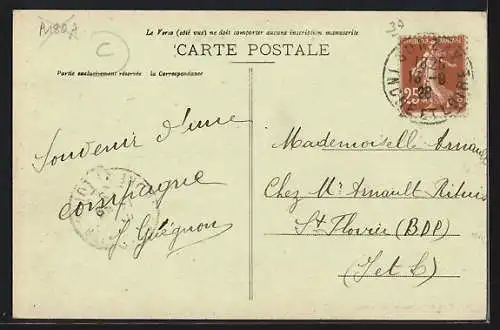 A1802
C
39
Le Verso (côté vue) ne doit comporter aucune inscription manuscrite
CARTE POSTALE
Partie exclusivement réservée à la Correspondance
INDRE ET LOIRE
25
Souvenir d'une
compagne
J. Guégnon
Mademoiselle Arnault
Chez Mr Arnault
St Flovier (BDP)
(I et L)